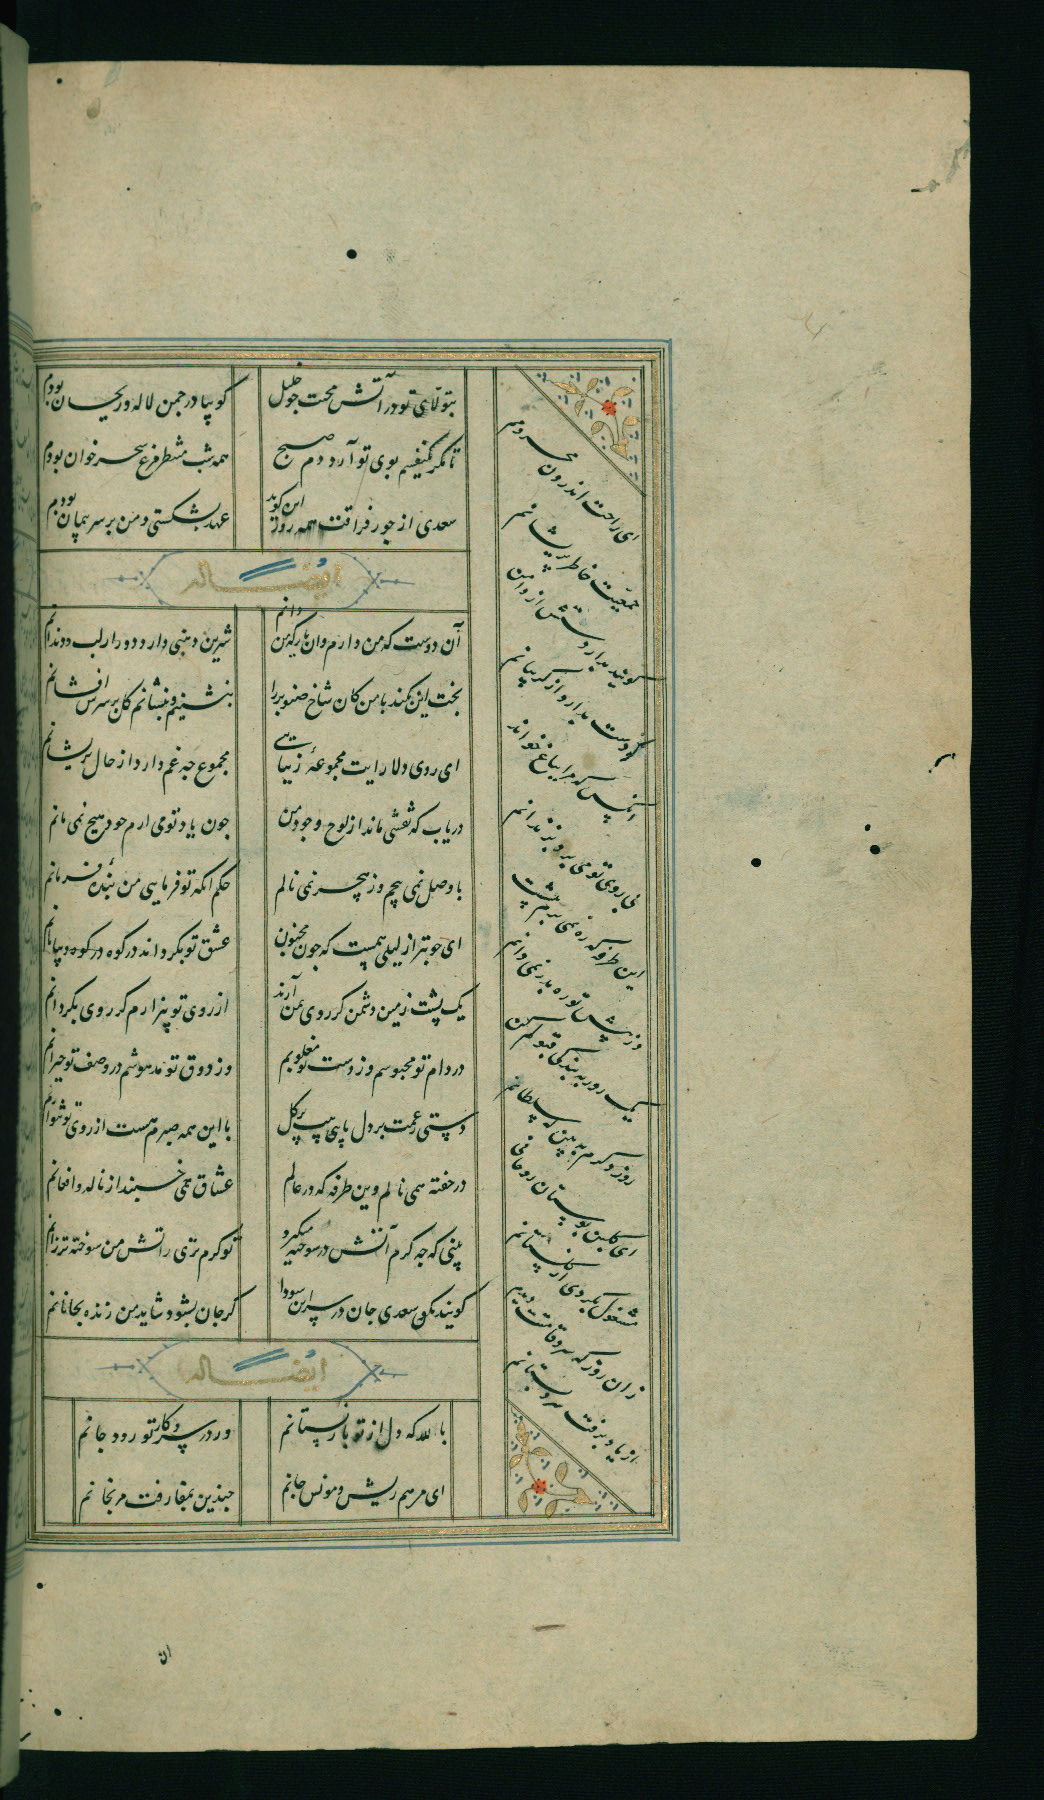 بتولای تو در آتش محنت چو خلیل
گوییا در چمن لاله و ریحان بودم
تا مگر یکنفسم بوی تو آرد دم صبح
همه شب منتظر مرغ سحر خوان بودم
سعدی از جور فراقت همه روز این گوید
عهد بشکستی و من بر سر پیمان بودم
ایضا له
آن دوست که من دارم وان یار که من دانم
شیرین دهنی دارد دور از لب و دندانم
بخت این نکند با من کان شاخ صنوبر را
بنشینم و بنشانم گل بر سرش افشانم
ای روی دلارایت مجموعهٔ زیبایی
مجموع چه غم دارد از حال پریشانم
دریاب که نقشی ماند از لوح وجود من
چون یاد تو می ارم خود هیچ نمی مانم
با وصل نمی پیچم وز هجر نمی نالم
حکم انکه تو فرمایی من بندهٔ فرمانم
ای خوبتر از لیلی بیمست که چون مجنون
عشق تو بگرداند در کوه و بیابانم
یک پشت زمین دشمن گر روی بمن آرند
از روی تو بیزارم گر روی بگردانم
در دام تو محبوسم وز دست تو مغلوبم
وز ذوق تو مدهوشم در وصف تو حیرانم
دستی ز غمت بر دل پایی ز پیت در گل
با این همه صبرم هست از روی تو نتوانم
در خفیه همی نالم وین طرفه که در عالم
عشاق نمی خسبند از ناله و افغانم
بینی که چه گرم آتش در سوخته میگیرد
تو گرم تری ز اتش من سوخته تر زانم
گویند مکن سعدی جان در سر این سودا
گر جان بشود شاید من زنده بجانانم
ایضا له
بالله که دل از تو باز نستانم
ور در سر کار تو رود جانم
ای مرهم ریش و مونس جانم
چندین بمفارقت مرنجانم
ای راحت اندرون مجروحم
جمعیت خاطر پریشانم
گویند بدار دستش از دامن
تا دست بدارد از گریبانم
آنکس که مرا بباغ میخواند
بی روی تو می برد بزندانم
این طرفه که ره نمی برم پیشت
وز پیش تو ره بدر نمی دانم
یک روز به بندگی قبولم کن
روز دگرم ببین که سلطانم
ای گلبن بوستان روحانی
مشغول بکردی از گلستانم
زان روز که سرو قامتت دیدم
از یاد برفت سرو بستانم
ان